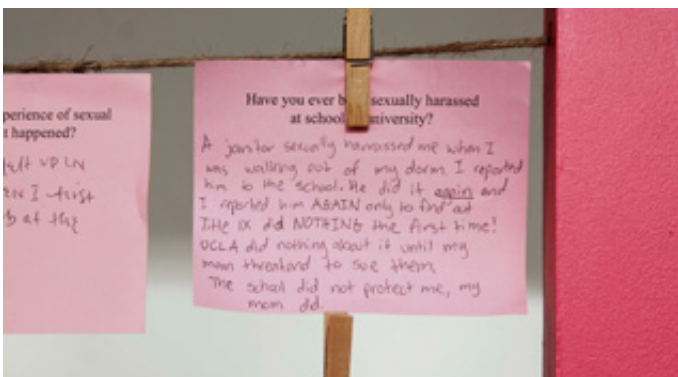 perience of sexual
t happened?
left up in
I first
at the
Have you ever b sexually harassed
at school university?
A janitor sexually harrassed me when I
was walking out of my dorm. I reported
him to the school. He did it again and
I reported him AGAIN only to find out
Title IX did NOTHING the first time!
UCLA did nothing about it until my
mom threatend to sue them.
The school did not protect me, my
mom did.